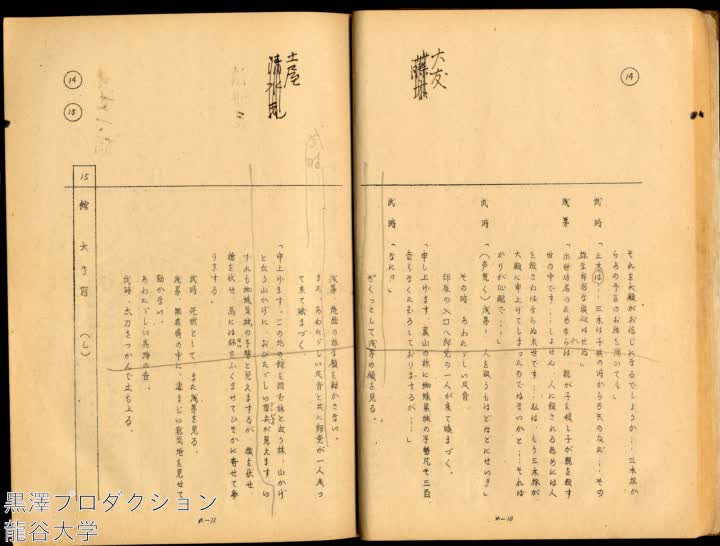 ⑭
大友
それを大殿がお信じになるでしょうか‥‥三木殿が
らるの予言のお話を聞いても」
武時「三木は‥‥三木は子供の時からの友だ‥‥その
様な卑劣な裏切はせぬ」
浅茅「出世功名のためならば、親が子を殺し子が親を殺す
世の中です‥‥しょせん、人に殺される為めには人
を殺さねばならぬ末世です‥‥私は、もう三木殿が
大殿に申上げてしまったのではないかと‥‥それば
かりが心配で‥‥」
武時「(声荒く)浅茅! 人を疑うもほどほどにせい!!」
その時、あわただしい足音。
部屋の入口へ郎党の一人が来て跪まづく。
「申し上げます、裏山の林に蜘蛛巣城の手勢凡そ三百
音もなくたむろしておりまするが‥‥」
武時「なに!!」
ぎくっとして浅茅の顔を見る。
x—10
⑭
⑮
土屋
清水
浅茅、能面の様な顔を動かさない。
また、あわただしい足音と共に郎党が一人走っ
て来て跪まづく
「申上げます。この北の館を囲む林と云う林、山かげ
と云う山かげに、おびただしい軍兵が見えます。い
ずれも蜘蛛巣城の手勢と見えまするが、旗を伏せ
槍を伏せ、馬には枚をふくませてひそかに寄せて参
りまする」
武時、茫然として、また浅茅を見る。
浅茅、無表情の中に、凄まじい意気地を見せて
動かない。
あわただしい具足の音。
武時、太刀をつかんで立ち上る。
15 館 大手前 (し)
x—11
黒澤プロダクション
龍谷大学